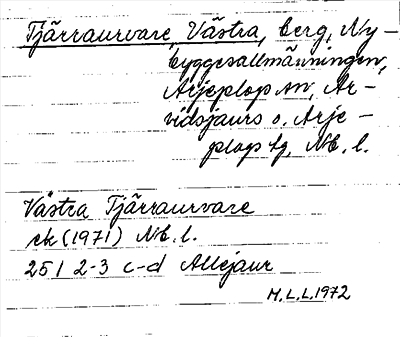 Tjärraurvare, Västra, berg, Ny-
byggesallmänningen,
Arjeplop sn, Ar-
vidsjaurs o. Arje-
plogs tg, Nb. l.
Västra Tjärraurvare
ek (1971) Nb. l.
25 I 2-3 c-d Allejaur
M.L.L. 1972